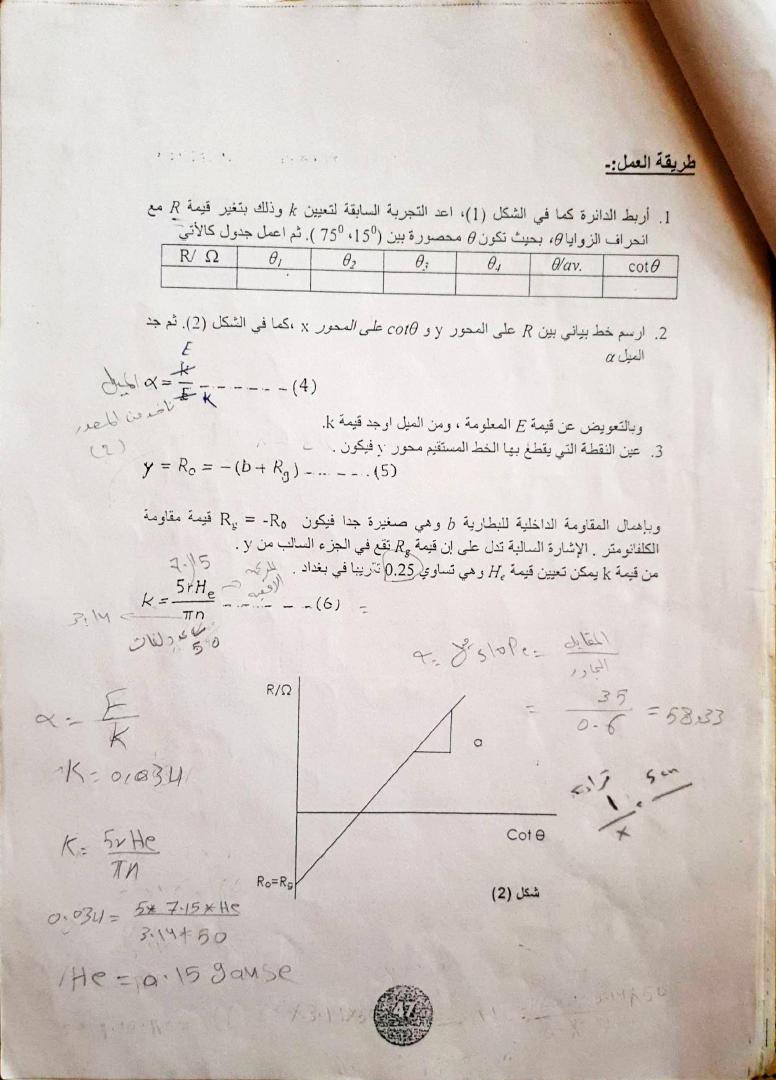 طريقة العمل:-
1. أربط الدائرة كما في الشكل (1)، اعد التجربة السابقة لتعيين k وذلك بتغير قيمة R مع
انحراف الزوايا θ، بحيث تكون θ محصورة بين (15⁰، 75⁰ ). ثم اعمل جدول كالآتي
R/ Ω θ₁ θ₂ θ₃ θ₄ θ/av. cotθ
2. ارسم خط بياني بين R على المحور y و cotθ على المحور x ،كما في الشكل (2). ثم جد
الميل α
E
الميل α = k/E - - - - - - - (4)
K
ناخذ من المصدر
(2)
وبالتعويض عن قيمة E المعلومة ، ومن الميل اوجد قيمة k.
3. عين النقطة التي يقطع بها الخط المستقيم محور y فيكون .
y = R₀ = -(b + R_g) - - - - - . (5)
وبإهمال المقاومة الداخلية للبطارية b وهي صغيرة جدا فيكون R_g = -R₀ قيمة مقاومة
الكلفانومتر . الإشارة السالبة تدل على إن قيمة R_g تقع في الجزء السالب من y .
من قيمة k يمكن تعيين قيمة H_e وهي تساوي 0.25 تقريبا في بغداد .
7.15
k = 5rH_e/πn - - - - - - - (6) =
الافقيه
3.14
عدد لفات
50
slope = المقابل/المجاور
= 35/0.6 = 58.33
R/Ω
α = E/K
K = 0.034
5cm
1/x
Cot θ
K = 5rHe/πn
R₀=R_g
شكل (2)
0.034 = 5* 7.15 * He/3.14 * 50
He = 0.15 gause
47